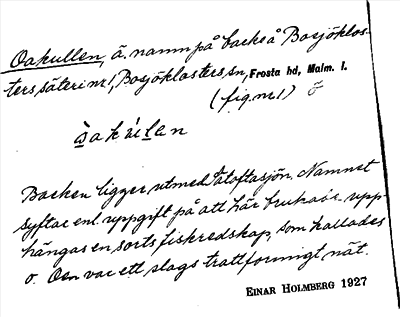 Oakullen, ä. namn på backe å Bosjöklos-
ters säteri nr 1, Bosjöklosters sn, Frosta hd, Malm. l.
(fig. nr 1) ö
Backen ligger utmed Råtoftasjön. Namnet
syftar enl. uppgift på att här brukade upp-
hängas en sorts fiskredskap, som kallades
o. Den var ett slags trattformigt nät.
EINAR HOLMBERG 1927